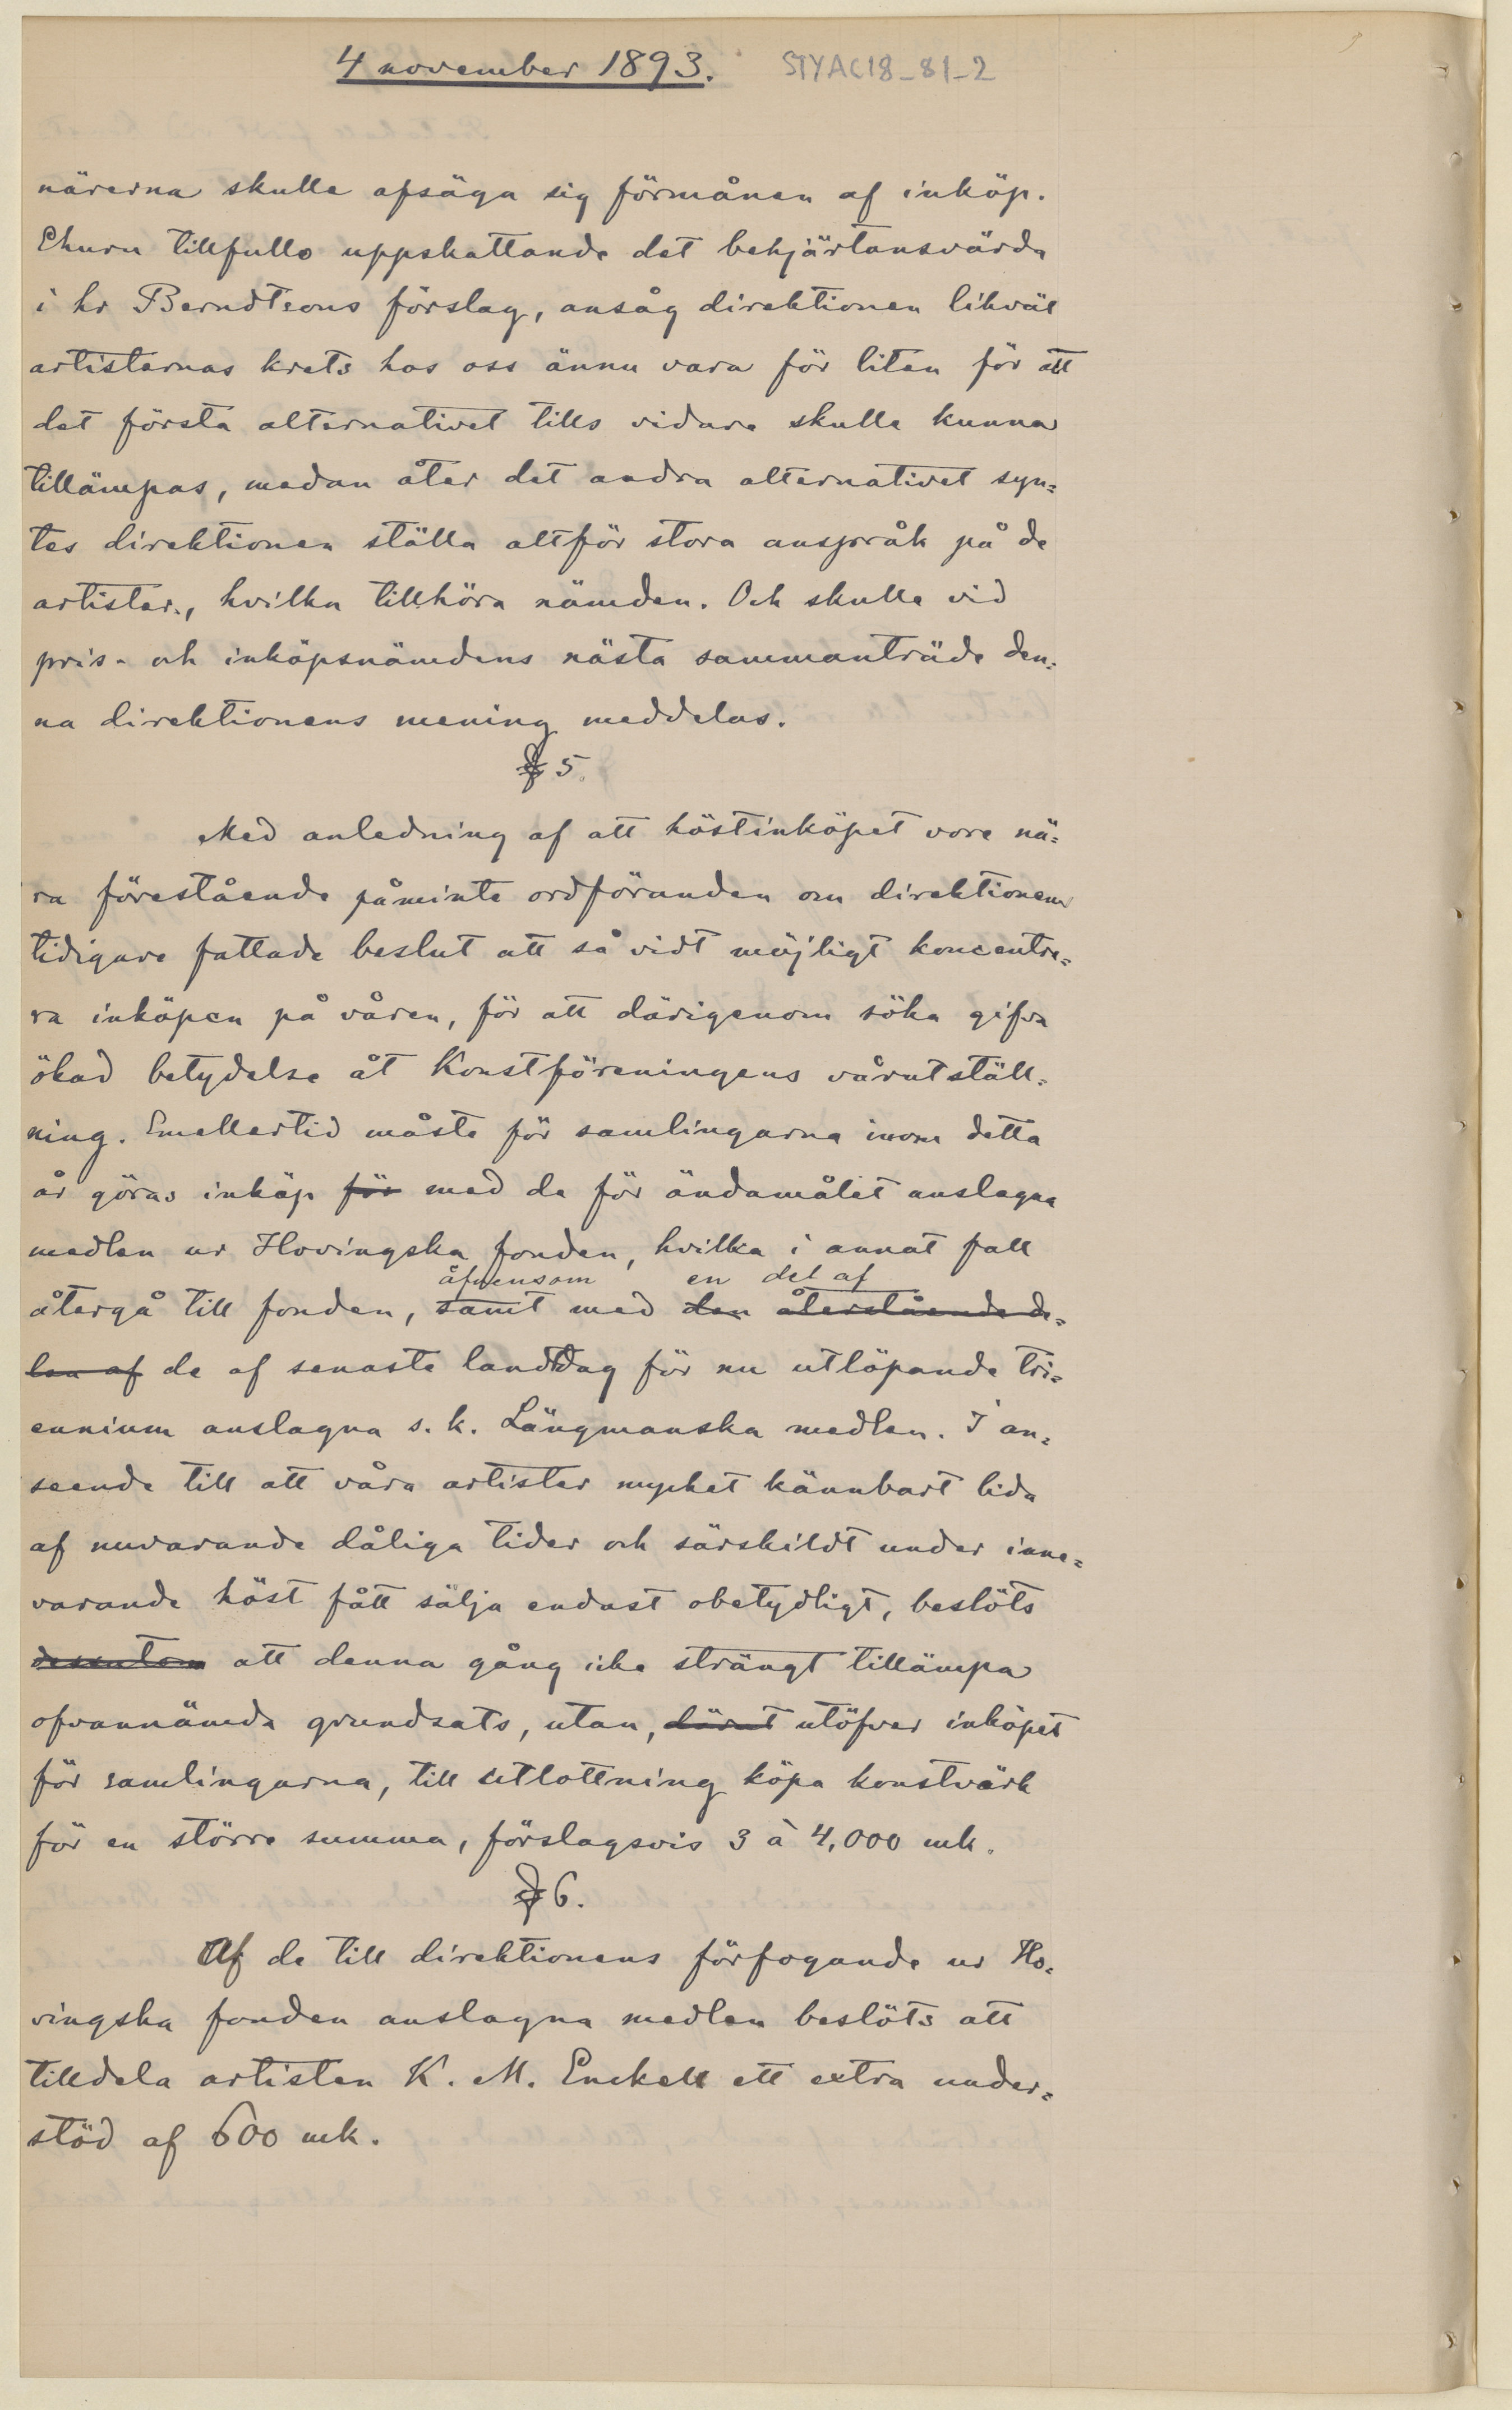 4 november 1893. STYAC18_81_2
närerna skulle afsäga sig förmånen af inköp.
Ehuru tillfullo uppskattande det behjärtansvärda
i hr Berndtsons förslag, ansåg direktionen likväl
artisternas krets hos oss ännu vara för liten för att
det första alternativet tills vidare skulle kunna
tillämpas, medan åter det andra alternativet syn=
tes direktionen ställa alltför stora anspråk på de
artister, hvilka tillhöra nämden. Och skulle vid
pris- och inköpsnämdens nästa sammanträde den=
na direktionens mening meddelas.
§ 5.
Med anledning af att höstinköpet vore nä=
ra förestående påminte ordföranden om direktionens
tidigare fattade beslut att så vidt möjligt koncentre=
ra inköpen på våren, för att därigenom söka gifva
ökad betydelse åt Konstföreningens vårutställ=
ning. Emellertid måste för samlingarna inom detta
år göras inköp för med de för ändamålet anslagna
medlen ur Hovingska fonden, hvilka i annat fall
äfvensom en del af
återgå till fonden, samt med den återstående de=
len af de af senaste landtdag för nu utlöpande tri=
ennium anslagna s. k. Längmanska medlen. I an=
seende till att våra artister mycket kännbart lida
af nuvarande dåliga tider och särskildt under inne=
varande höst fått sälja endast obetydligt, beslöts
dessutom att denna gång icke strängt tillämpa
ofvannämda grundsats, utan, därut utöfver inköpet
för samlingarna, till utlottning köpa konstvärk
för en större summa, förslagsvis 3 à 4,000 mk.
§ 6.
Af de till direktionens förfogande ur Ho=
vingska fonden anslagna medlen beslöts att
tilldela artisten K. M. Enckell ett extra under=
stöd af 600 mk.